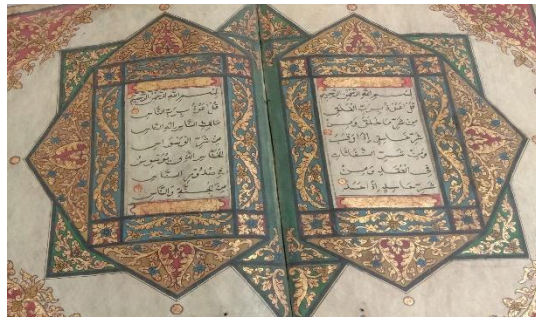 بِسْمِ اللهِ الرَّحْمٰنِ الرَّحِيْمِ
قُلْ اَعُوْذُ بِرَبِّ الْفَلَقِ
مِنْ شَرِّ مَا خَلَقَ وَمِنْ
شَرِّ غَاسِقٍ اِذَا وَقَبَ
وَمِنْ شَرِّ النَّفّٰثَاتِ
فِى الْعُقَدِ وَمِنْ
شَرِّ حَاسِدٍ اِذَا حَسَدَ
بِسْمِ اللهِ الرَّحْمٰنِ الرَّحِيْمِ
قُلْ اَعُوْذُ بِرَبِّ النَّاسِ
مَلِكِ النَّاسِ اِلٰهِ النَّاسِ
مِنْ شَرِّ الْوَسْوَاسِ
الْخَنَّاسِ الَّذِى يُوَسْوِسُ
فِى صُدُوْرِ النَّاسِ
مِنَ الْجِنَّةِ وَالنَّاسِ